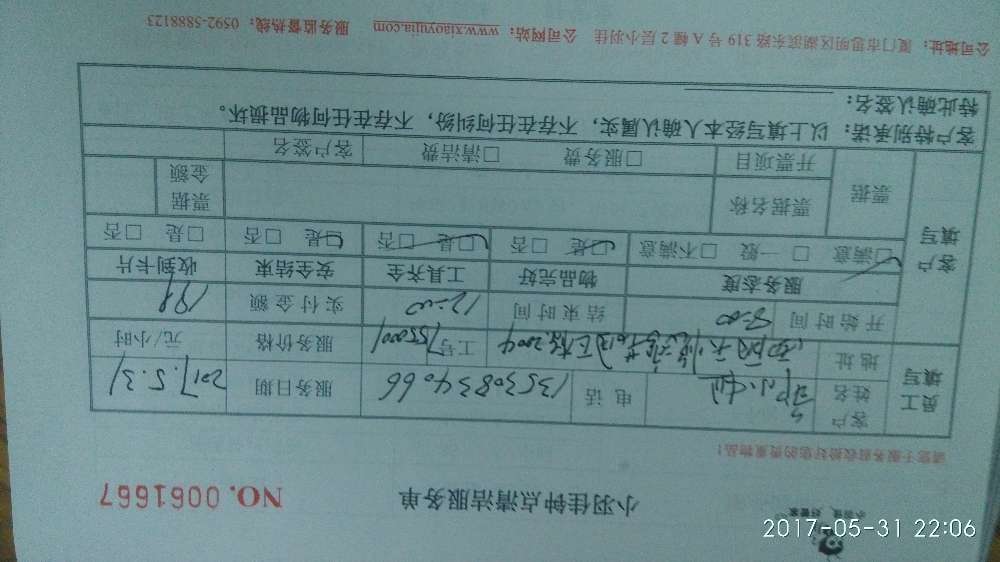 小羽佳 好管家
小羽佳钟点清洁服务单
NO. 0061667
请您于服务前收拾好您的贵重物品！
员工填写
客户姓名
电话 13530834066
服务日期 2017.5.31
地址
工号
服务价格 元/小时
客户填写
开始时间 8:00
结束时间 12:00
实付金额
服务态度
物品完好
工具齐全
安全结束
收到卡片
□满意 □一般 □不满意
□是 □否
□是 □否
□是 □否
□是 □否
票据
票据名称
票据金额
开票项目
□服务费 □清洁费
客户签名
客户特别承诺：以上填写经本人确认属实，不存在任何纠纷，不存在任何物品损坏。
特此确认签名：
公司地址：厦门市思明区湖滨东路 319 号 A 幢 2 层小羽佳 公司网站：www.xiaoyujia.com 服务监督热线：0592-5888123
2017-05-31 22:06